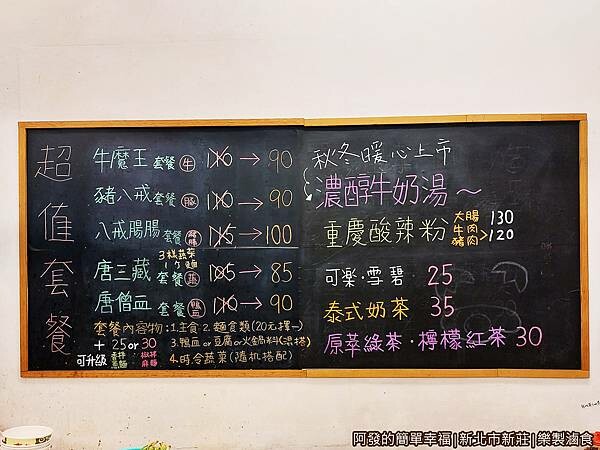 超值套餐
牛魔王套餐 牛 110→90
豬八戒套餐 豚 110→90
八戒腸腸套餐 豚腸 115→100
3樣蔬菜
1份麵
唐三藏套餐 蔬 105→85
唐僧血套餐 鴨血 110→90
套餐內容物:1.主食 2.麵食類(20元擇一)
3.鴨血or豆腐or火鍋料(混搭)
4.時令蔬菜(隨机搭配)
+25or30
可升級 香拌蔥麵 椒拌麻麵
秋冬暖心上市
濃醇牛奶湯~
重慶酸辣粉 大腸 130
牛肉
豬肉>120
可樂·雪碧 25
泰式奶茶 35
原萃綠茶·檸檬紅茶 30
阿發的簡單幸福|新北市新莊|樂製滷食